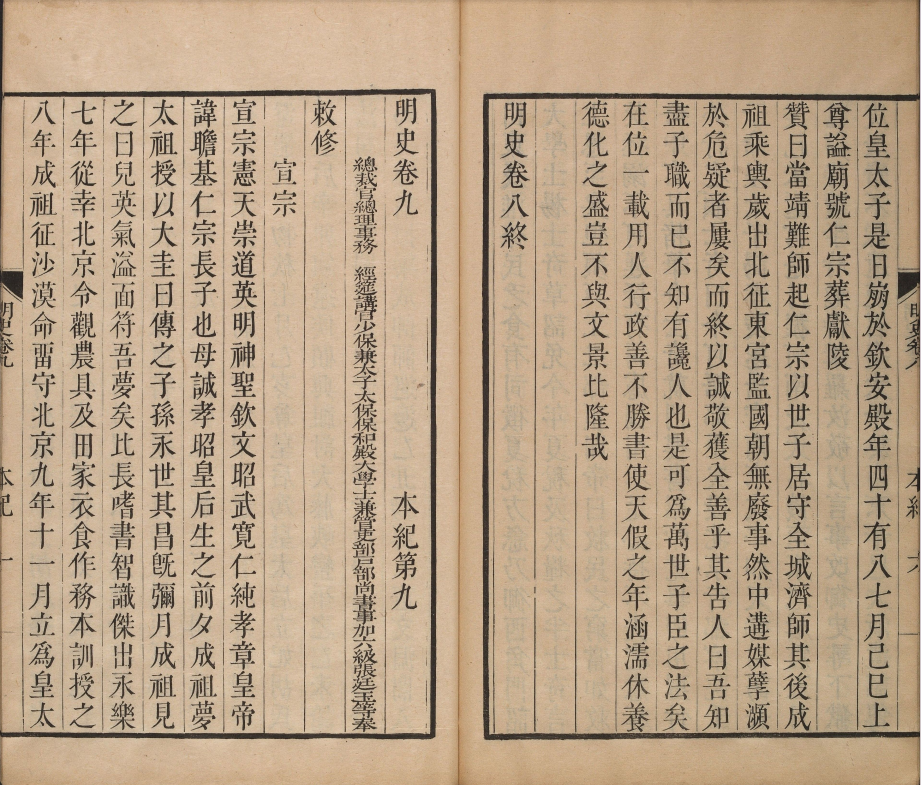 位皇太子是日崩於欽安殿年四十有八七月己巳上
尊謚廟號仁宗葬獻陵
贊曰當靖難師起仁宗以世子居守全城濟師其後成
祖乘輿歲出北征東宮監國朝無廢事然中遘媒孽瀕
於危疑者屢矣而終以誠敬獲全善乎其告人曰吾知
盡子職而已不知有讒人也是可爲萬世子臣之法矣
在位一載用人行政善不勝書使天假之年涵濡休養
德化之盛豈不與文景比隆哉
明史卷八終
明史卷八
本紀
六
明史卷九 本紀第九
總裁官總理事務 經筵講官少保兼太子太保保和殿大學士兼管吏部戶部尚書事加六級張廷玉等奉
敕修
宣宗
宣宗憲天崇道英明神聖欽文昭武寬仁純孝章皇帝
諱瞻基仁宗長子也母誠孝昭皇后生之前夕成祖夢
太祖授以大圭曰傳之子孫永世其昌旣彌月成祖見
之曰兒英氣溢面符吾夢矣比長嗜書智識傑出永樂
七年從幸北京令觀農具及田家衣食作務本訓授之
八年成祖征沙漠命畱守北京九年十一月立爲皇太
明史卷九
本紀
一